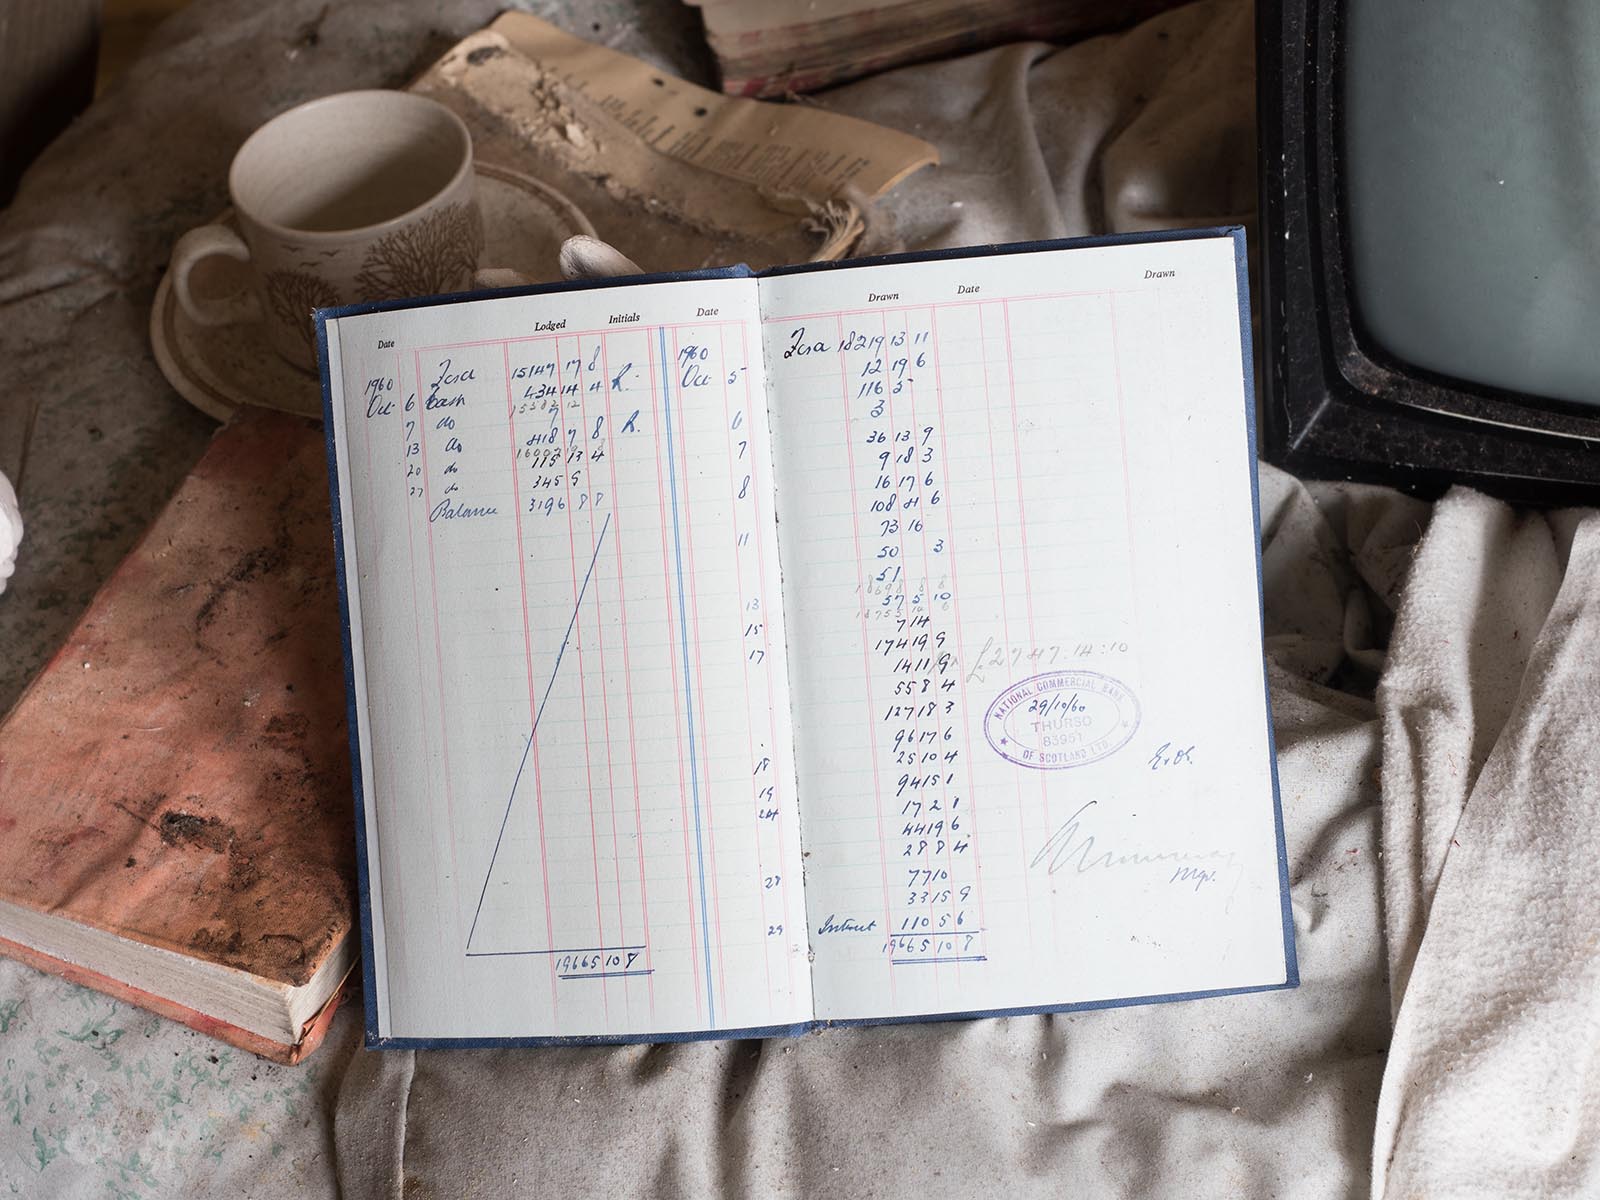 Date Lodged Initials Date
1960
15147 17 8
1960 Oct 5
Oct 6 Cash 434 14 4 R.
15582 12
7 do 7
6
13 do 418 7 8 R.
20 do 115 13 4
7
27 do 345 9
Balance 3196 8 8
8
11
13
15
17
18
19
24
27
29
19665 10 8
Drawn Date Drawn
18219 13 11
12 19 6
116 5
3
36 13 9
9 18 3
16 17 6
108 4 6
73 16
50 3
51
18698 8 8
57 5 10
18755 14 6
7 14
174 19 9
14 11 9
£2747.14:10
55 8 4
127 18 3
96 17 6
25 10 4
94 15 1
17 2 1
44 19 6
28 8 4
77 10
33 15 9
Interest 110 5 6
19665 10 8
NATIONAL COMMERCIAL BANK
29/10/60
THURSO
83951
OF SCOTLAND LTD.
Mgr.